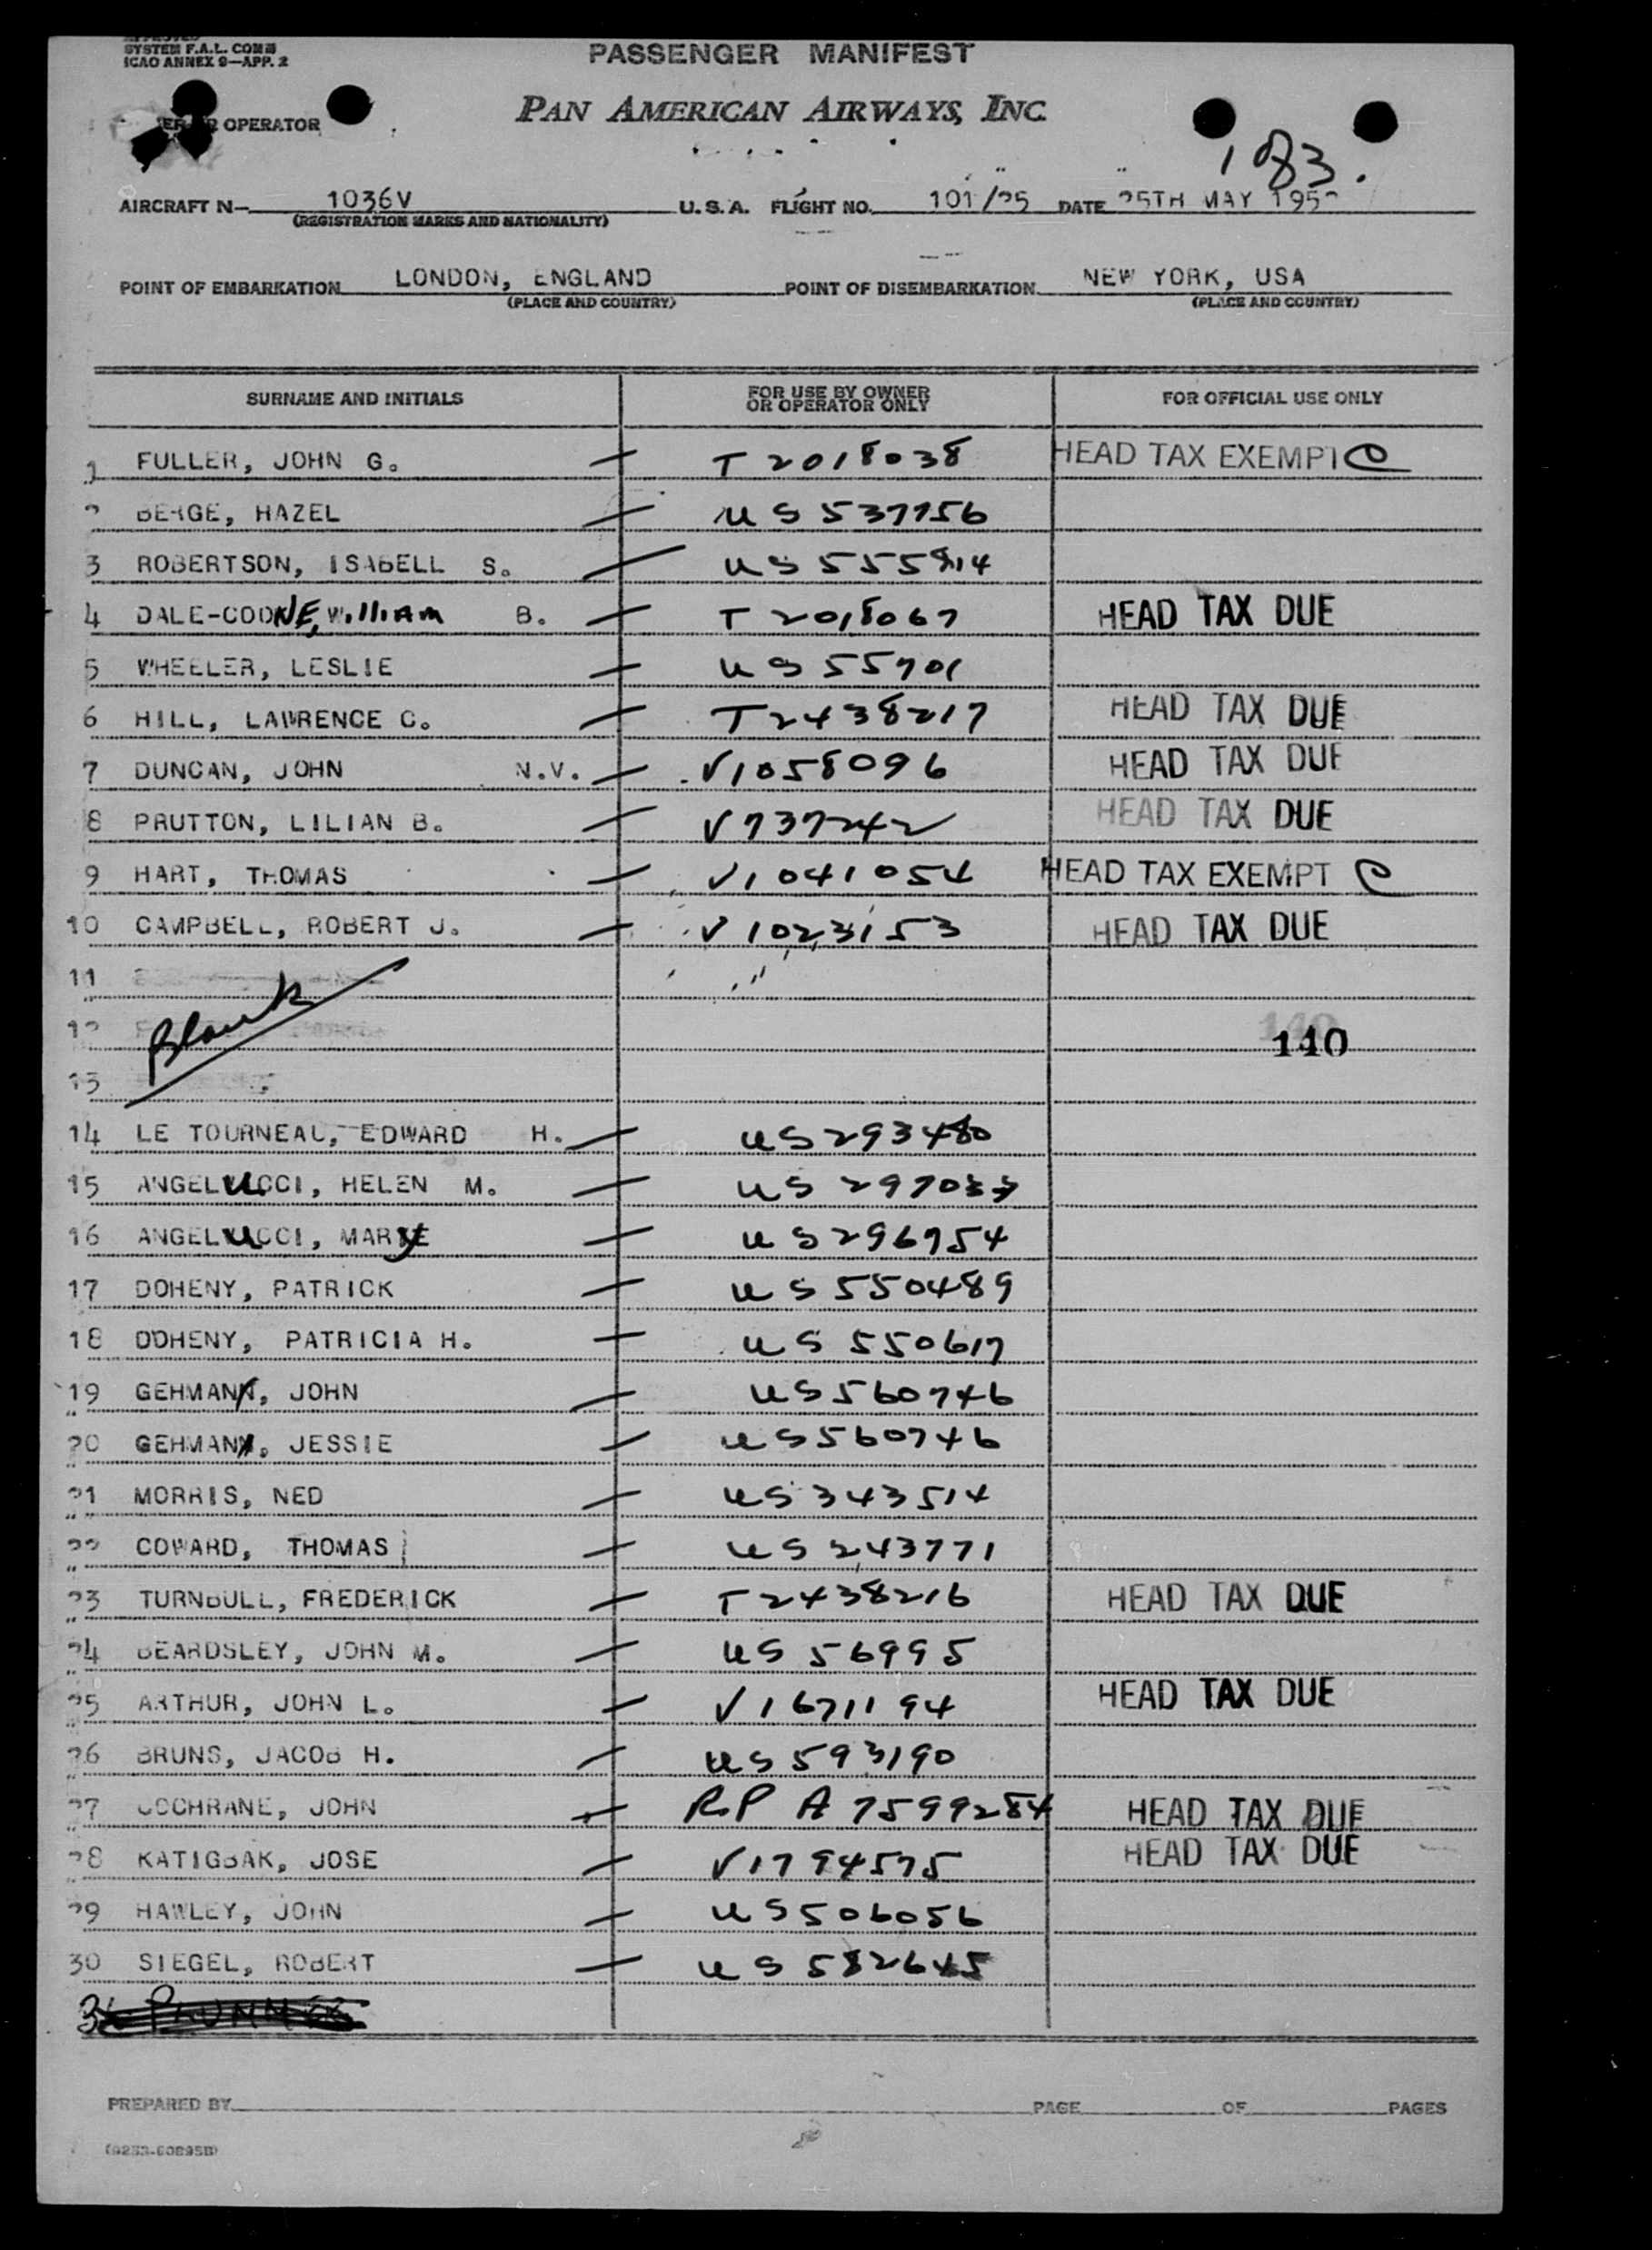 SYSTEM F.A.L. COMM
ICAO ANNEX 9—APP. 2
PASSENGER MANIFEST
PAN AMERICAN AIRWAYS, INC.
OPERATOR
183.
AIRCRAFT N— 1036V U.S.A. FLIGHT NO. 101/25 DATE 25TH MAY 195
(REGISTRATION MARKS AND NATIONALITY)
POINT OF EMBARKATION LONDON, ENGLAND POINT OF DISEMBARKATION NEW YORK, USA
(PLACE AND COUNTRY) (PLACE AND COUNTRY)
SURNAME AND INITIALS FOR USE BY OWNER OR OPERATOR ONLY FOR OFFICIAL USE ONLY
1 FULLER, JOHN G. — T 2018038 HEAD TAX EXEMPT C
2 BERGE, HAZEL — US 537756
3 ROBERTSON, ISABELL S. — US 555814
4 DALE-COONE, William B. — T 2018067 HEAD TAX DUE
5 WHEELER, LESLIE — US 55701
6 HILL, LAWRENCE C. — T2438217 HEAD TAX DUE
7 DUNCAN, JOHN N.V. — V1058096 HEAD TAX DUE
8 PRUTTON, LILIAN B. — V737242 HEAD TAX DUE
9 HART, THOMAS — V1041054 HEAD TAX EXEMPT C
10 CAMPBELL, ROBERT J. — V1023153 HEAD TAX DUE
11
12 Blank 140
13
14 LE TOURNEAU, EDWARD H. — US293480
15 ANGELUCCI, HELEN M. — US 297037
16 ANGELUCCI, MARYE — US296754
17 DOHENY, PATRICK — US 550489
18 DOHENY, PATRICIA H. — US 550617
19 GEHMAN, JOHN — US560746
20 GEHMAN, JESSIE — US560746
21 MORRIS, NED — US343514
22 COWARD, THOMAS — US 243771
23 TURNBULL, FREDERICK — T2438216 HEAD TAX DUE
24 BEARDSLEY, JOHN M. — US 56995
25 ARTHUR, JOHN L. — V1671194 HEAD TAX DUE
26 BRUNS, JACOB H. — US593190
27 COCHRANE, JOHN — R.P A7599284 HEAD TAX DUE
28 KATIGBAK, JOSE — V1794575 HEAD TAX DUE
29 HAWLEY, JOHN — US506056
30 SIEGEL, ROBERT — US 582645
PREPARED BY PAGE OF PAGES